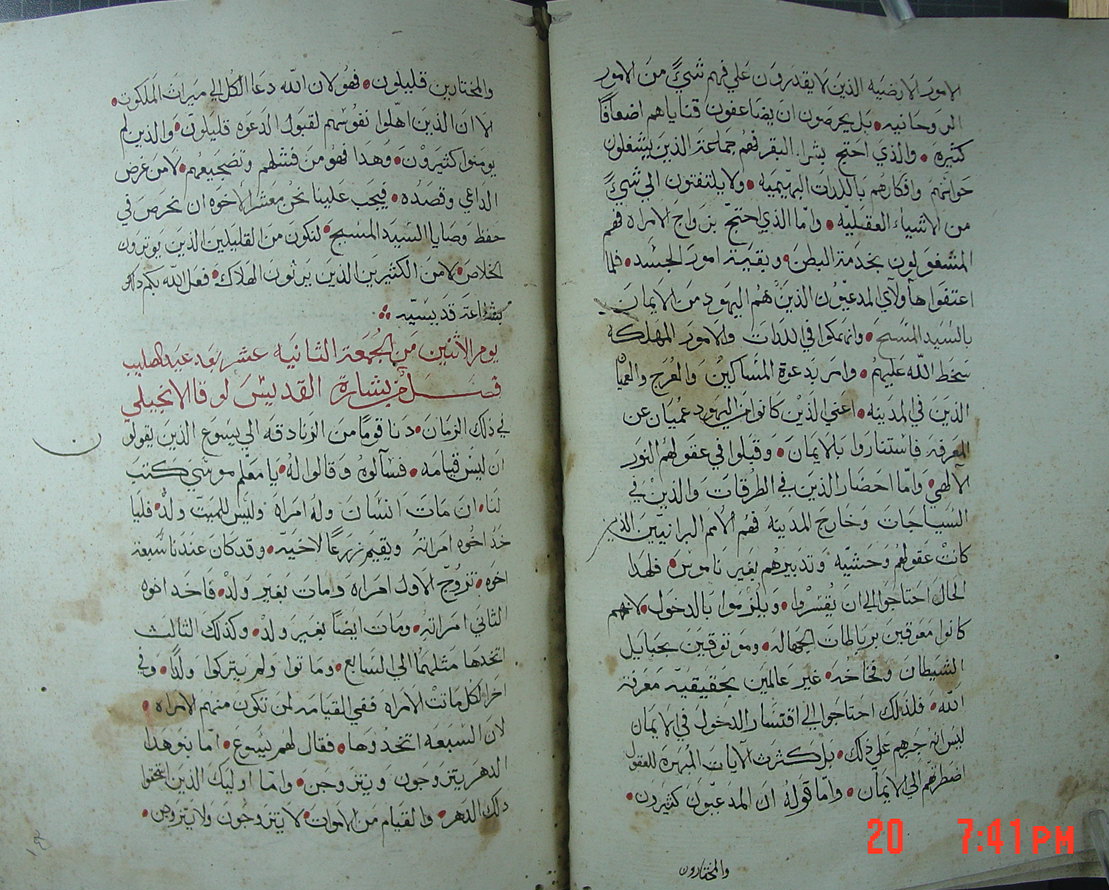 الامور الارضيه الذين لا يقدرون علي فهم شيءً من الامور
الروحانيه • بل يحرصون ان يضاعفون قناياهم اضعافًا
كثيرة • والذي احتج بشرا البقر فهم جماعة الذين يشغلون
حواسهم وافكارهم باللذات البهيميه • ولا يلتفتون الي شيءً
من الاشياء العقليّه • وامّا الذي احتجّ بزواج الامراه فهم
المشغولون بخدمة البطن • وبقية امور الجسد • فلما
اعتفوا هاولاي المدعيون الذين هم اليهود من الايمان
بالسيد المسيح • وانهمكوا في اللذات والامور المهلكه
سخط الله عليهم • وامر بدعوة المساكين والعرج والعميا
الذين في المدينه • اعني الذين كانوا من اليهود عميان عن
المعرفة فاستناروا بالايمان • وقبلوا في عقولهم النور
الالهي • وامّا احضار الذين في الطرقات والذين في
السياجات وخارج المدينة فهم الامم البرانيين الذين
كانت عقولهم وحشيّه وتدبيرهم بغير ناموس • فلهذا
الحال احتاجوا الي ان يقسروا • ويلزموا بالدخول • لانهم
كانوا معرقين برباطات الجهاله • وموثوقين بحبايل
الشيطان وفخاخه • غير عالمين بحقيقية معرفة
الله • فلذلك احتاجوا الي اقتسار الدخول في الايمان
ليس انه جبرهم علي ذلك • بل كثرت الايات المبهرة للعقول
اضطرتهم الي الايمان • وامّا قوله ان المدعيون كثيرون •
والمختارون
والمختارين قليلون • فهو لان الله دعا الكل الي ميراث الملكوت •
الا ان الذين اهلوا نفوسهم لقبول الدعوه قليلون • والذين لم
يومنوا كثيرون • وهذا فهو من فشلهم وتضجيعهم • لا من غرض
الداعي وقصده • فيجب علينا نحن معشر الاخوه ان نحرص في
حفظ وصايا السيد المسيح • لنكون من القليلين الذين يوثرون
الخلاص • لا من الكثيرين الذين يرثون الهلاك • فعل الله بكم ذلك
بشفاعة قديسيّه
يوم الاثنين من الجمعة الثانيه عشر بعد عيد الصليب
فصل من بشارة القديس لوقا الانجيلي
في ذلك الزمان • دنا قومًا من الزنادقه الي يسوع الذين يقولو
ان ليس قيامه • فسألوهُ وقالوا لهُ • يا معلم موسي كتب
لنا • ان مات انسان وله امراة وليس للميت ولدٌ • فليا
خذ اخوه امراته ويقيم زرعًا لاخيه • وقد كان عندنا سبعة
اخوه • تزوج الاول امراه ومات بغير ولدٌ • فاخد اخوه
الثاني امراته • ومات ايضًا بغير ولد • وكذلك الثالث
اتخدها مثلهما الي السابع • وماتوا ولم يتركوا ولدًا • وفي
اخر الكل ماتت الامراه ففي القيامه لمن تكون منهم الامراه •
لان السبعه اتخدوها • فقال لهم يسوع • امّا بنو هذا
الدهر يتزوجون ويتزوجن • وامّا اوليك الذين استحقوا
ذلك الدهر • والقيام من الاموات • لا يتزوجون ولا يتزوجن •